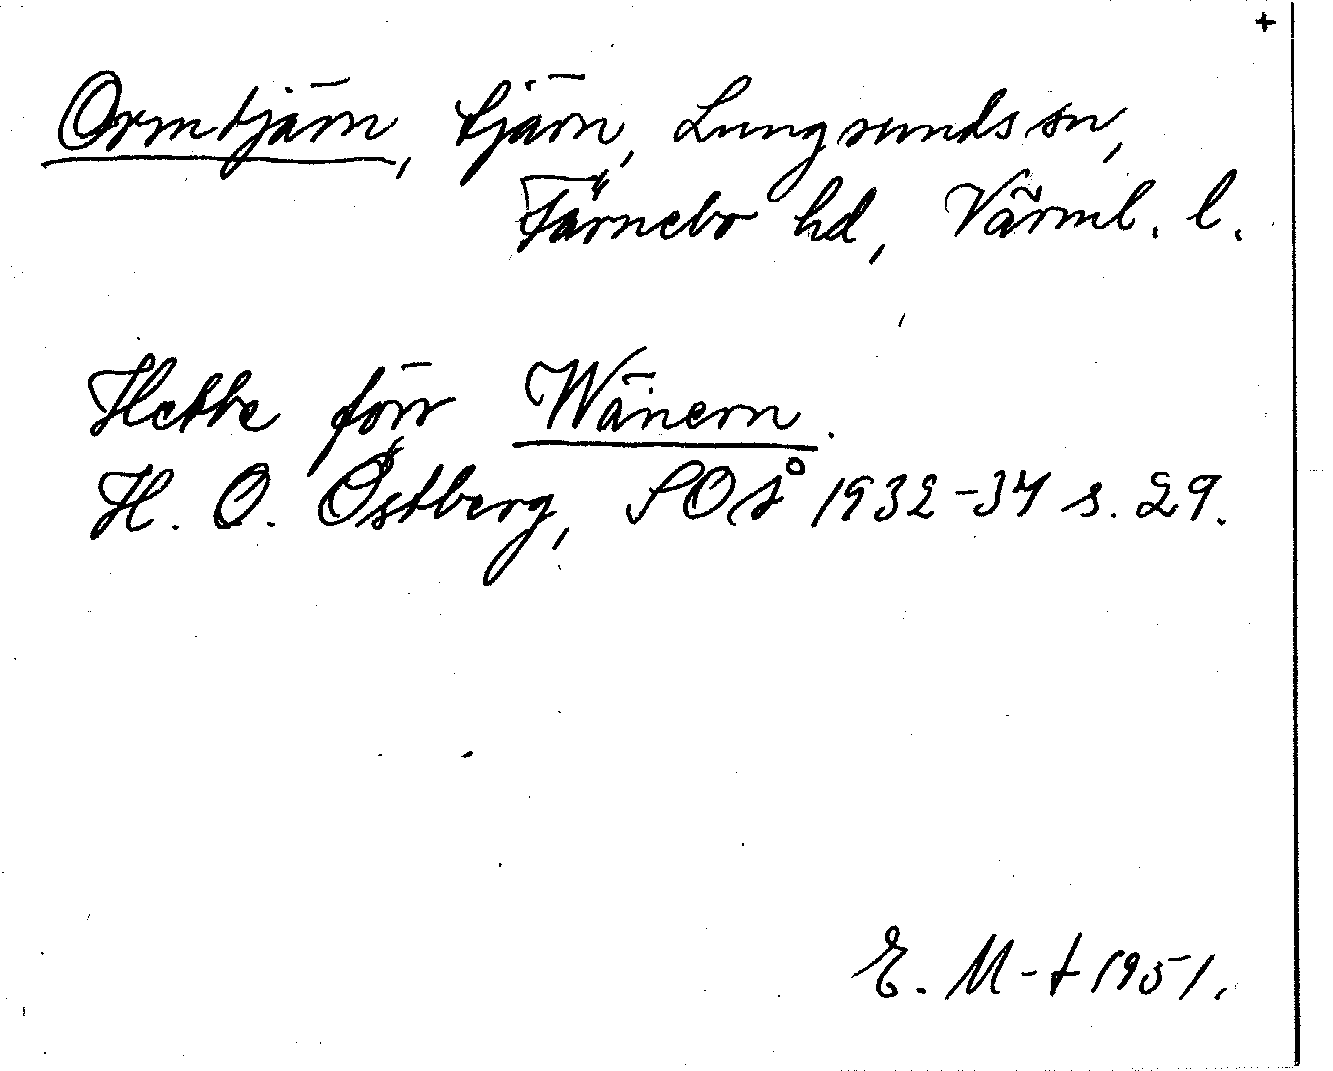 +
Ormtjärn, tjärn, Lungsunds sn,
Färnebo hd, Värml. l.
Hette förr Wänern.
H. O. Östberg, SOÅ 1932-34 s. 29.
E. M-t 1951.